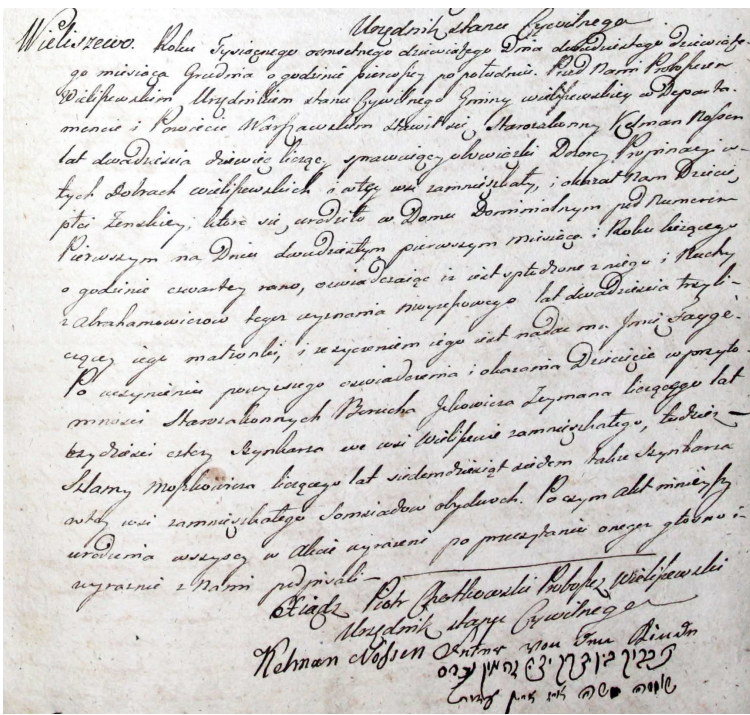 Urzędnik stanu Cywilnego
Wieliszewo. Roku Tysiącnego osmsetnego dziewiątego Dnia dwudziestego dziewiąte-
go miesiąca Grudnia o godzinie pierwszey po południu. Przed Nami Proboszczem
Wieliszewskim Urzędnikiem stanu Cywilnego Gminy wieliszewskiey w Departa-
mencie i Powiecie Warszawskim stawił się Starozakonny Kelman Nossen
lat dwadzieścia dziewięć liczący sprawuiący obowiązki Dozorcy Propinacyi w
tych dobrach wieliszewskich i w tey wsi zamieszkały, i okazał Nam Dziecię
płci Żenskiey, które się urodziło w Domu Dominialnym pod Numerem
Pierwszym na Dniu dwudziestym pierwszym miesiąca i Roku bieżącego
o godzinie czwartey rano, oswiadczaiąc iż iest spłodzone z niego i Ruchy
z Abrahamowiczow tegoż wyznania moyżeszowego lat dwadzieścia trzy li-
czącey iego małżonki, i życzeniem iego iest nadać mu Jmię Faygé.
Po uczynieniu powyższego oswiadczenia i okazania Dziecięcia w przyto-
mności Starozakonnych Berucha Jckowicza Zeymana liczącego lat
trzydzieści cztery Szynkarza we wsi Wieliszewie zamieszkałego, tudzież
Szlamy Moszkowicza liczącego lat siedemdziesiąt siedem także Szynkarza
w tey wsi zamieszkałego Somsiadow obydwuch. Po czym akt ninieyszy
urodzenia wszyscy w Akcie wyrażeni po przeczytaniu onegoż głosno i
wyraznie z Nami podpisali
Xiądz Piotr Chotkowski Proboszcz Wieliszewski
Urzędnik stanu Cywilnego
Kelman Nossen Vater von dem Kinde